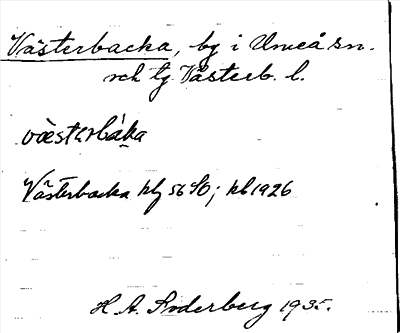 Västerbacka, by i Umeå sn.
och tg Västerb. l.
Västerbacka kbl 56 SO; kb 1926
H. A. Söderberg 1935.